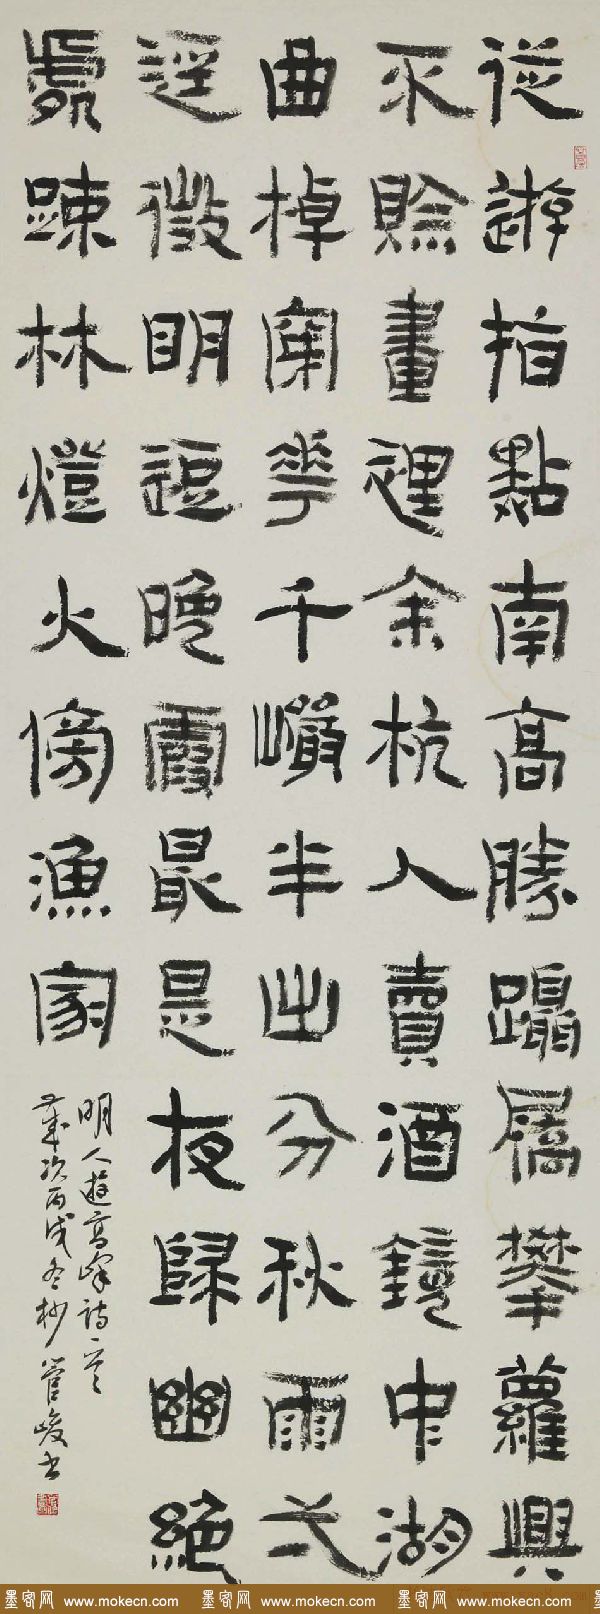 從遊指點南高勝躡屩攀蘿興
不賒畫裡余杭人賣酒鏡中湖
曲棹穿花千巖半出分秋雨弌
逕微明逗晚霞最是夜歸幽絕
處踈林燈火傍漁家
明人遊高峰詩一首
歲次丙戌冬杪管峻書
墨客网 www.mokecn.com 墨客网 www.mokecn.com 墨客网 www.mokecn.com